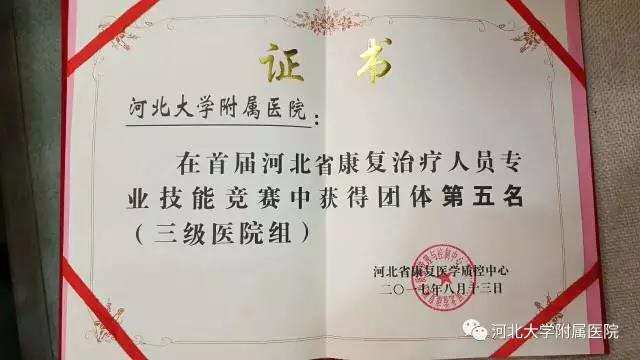 证 书
河北大学附属医院：
在首届河北省康复治疗人员专
业技能竞赛中获得团体第五名
（三级医院组）
河北省康复医学质控中心
二〇一七年八月十三日
河北大学附属医院